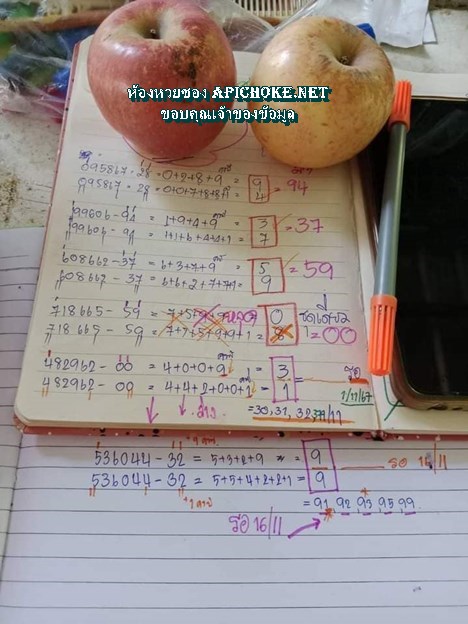 ห้องหวยซอง APICHOKE.NET
ขอบคุณเจ้าของข้อมูล
095867-28 = 0+2+8+9 = 9 = 94
095867-28 = 0+0+7+8+8+1 = 4
99606-94 = 1+9+4+9 = 3 = 37
99606-94 = 1+1+6+4+4+1 = 7
608662-37 = 6+3+7+9 = 5 = 59
608662-37 = 6+6+2+7+7+1 = 9
718665-59 = 7+5+9+9 = 0
718665-59 = 7+7+5+9+9+1 = 8 = 00
482962-00 = 4+0+0+9 = 3
482962-00 = 4+4+2+0+0+1 = 1
1/11/67
ล่าง = 30,31,32,37/11
536044-32 = 5+3+2+9 = 9 รอ 16/11
536044-32 = 5+5+4+2+2+1 = 9
= 91 92 93 95 99
รอ 16/11